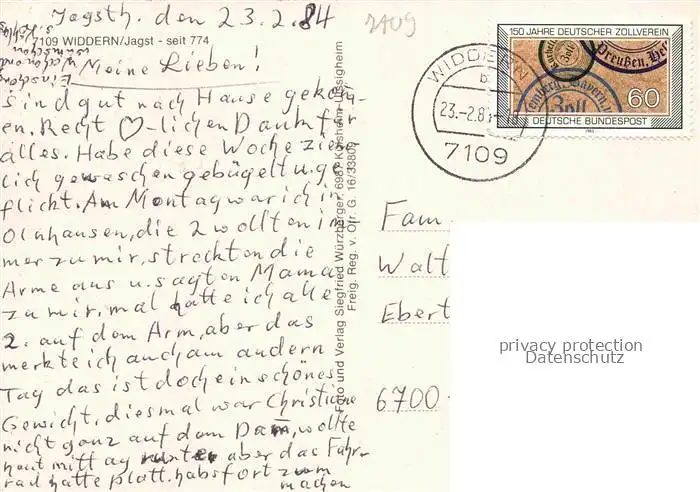 Jagsth. den 23.2.84
7109
7109 WIDDERN/Jagst - seit 774
Meine Lieben!
sind gut nach Hause gekom-
en. Recht ♡-lichen Dank für
alles. Habe diese Woche ziem
lich gewaschen gebügelt u. ge
flickt. Am Montag war ich in
Olnhausen, die 2 wollten im
mer zu mir, streckten die
Arme aus u. sagten Mama
zu mir, mal hatte ich alle
2. auf dem Arm, aber das
merkte ich auch am andern
Tag das ist doch ein schönes
Gewicht, diesmal war Christiane
nicht ganz auf dem Dam, wollte
heut mittag runter aber das Fahr-
rad hatte platt. habs fort zum
machen
Foto und Verlag Siegfried Würzberger, 6987 Külsheim-Uissigheim
Freig. Reg. v. Ofr. G. 16/3380
WIDDERN
b
23.-2.8
7109
150 JAHRE DEUTSCHER ZOLLVEREIN
Preußen, He
Bayern,
Zoll
60
DEUTSCHE BUNDESPOST
Fam
Walt
Ebert
6700
privacy protection
Datenschutz